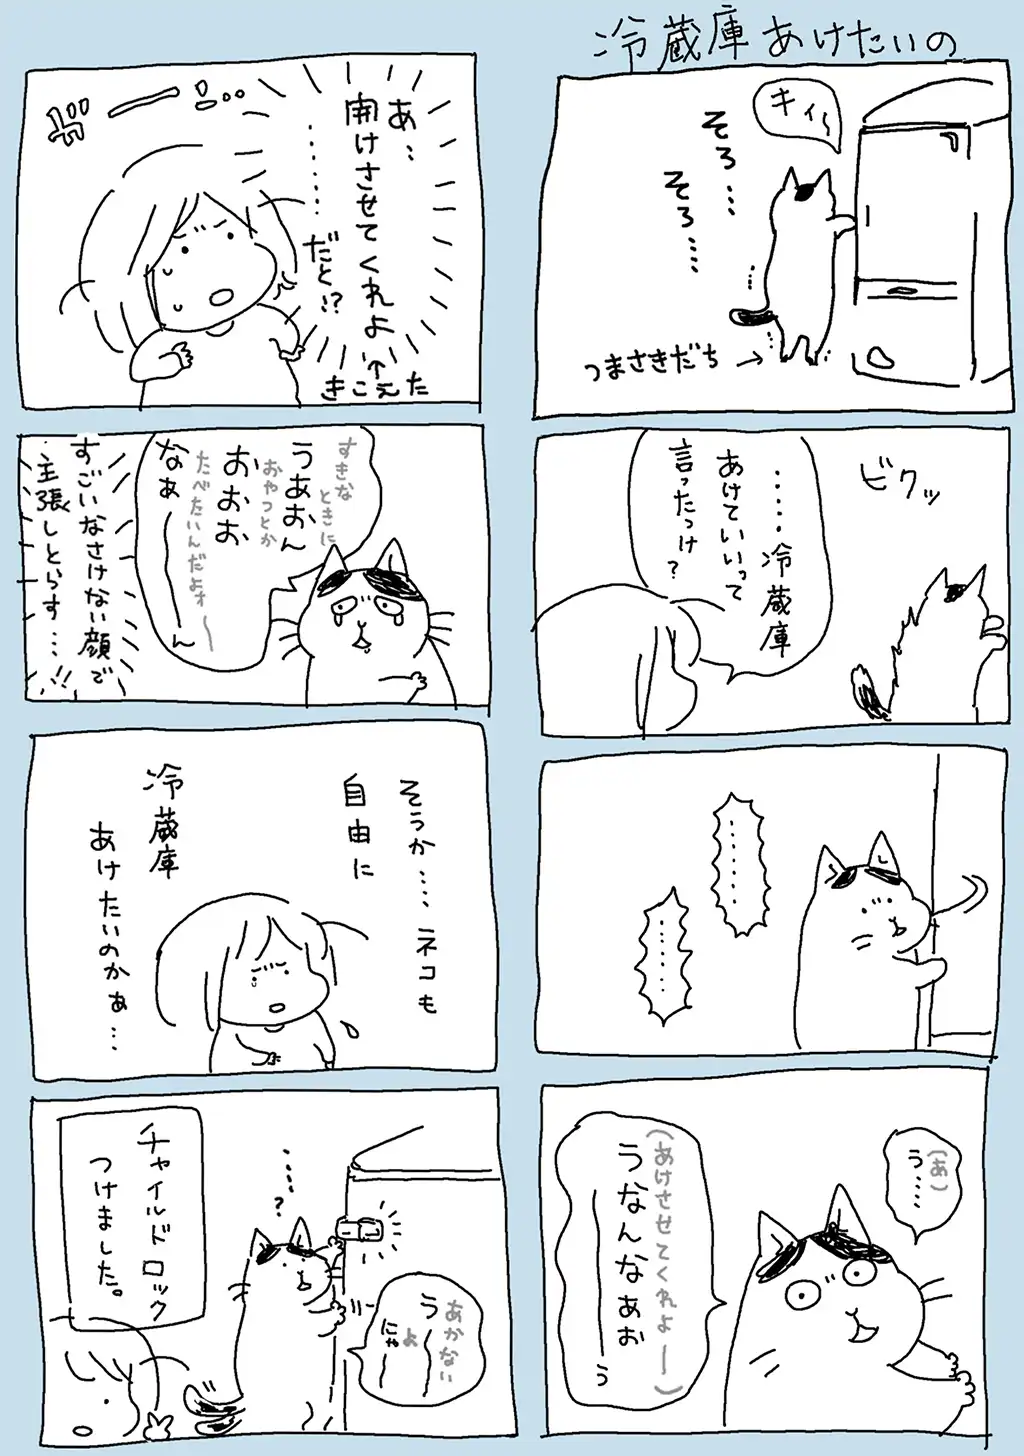 冷蔵庫あけたいの
キィ〜
そろ…
そろ…
つまさきだち→
ビクッ
……冷蔵庫
あけていいって
言ったっけ？
……
……
(あ)
う…
(あけさせてくれよー)
うなんなぁお
う
ガーン…
あ…
開けさせてくれよ
……だと!?
↑きこえた
すきな
ときに
うあおん
おやつとか
おおお
たべたいんだよォ〜
なぁーん
すごいなさけない顔で
主張しとらす…!!
そうか…ネコも
自由に
冷蔵庫
あけたいのかぁ…
…?
あかない
うー
よ
にゃー
チャイルドロック
つけました。